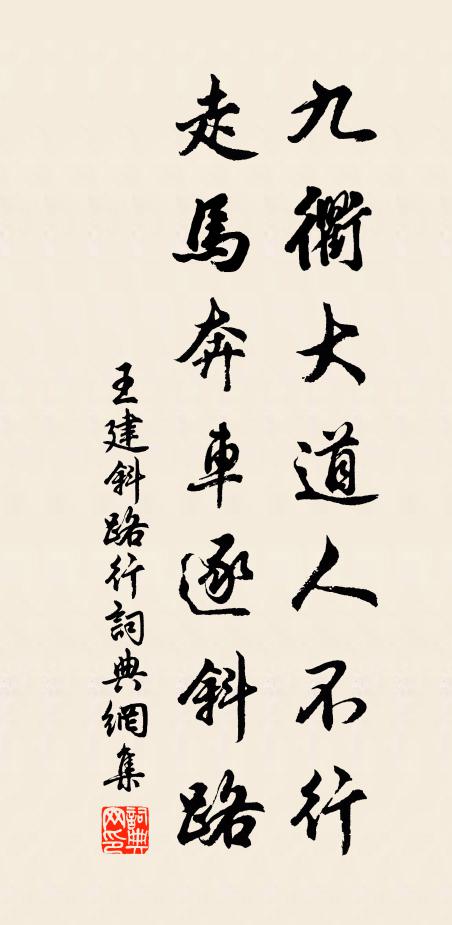 九衢大道人不行
走馬奔車逐斜路
王建斜路行詞典網集
詞典網印